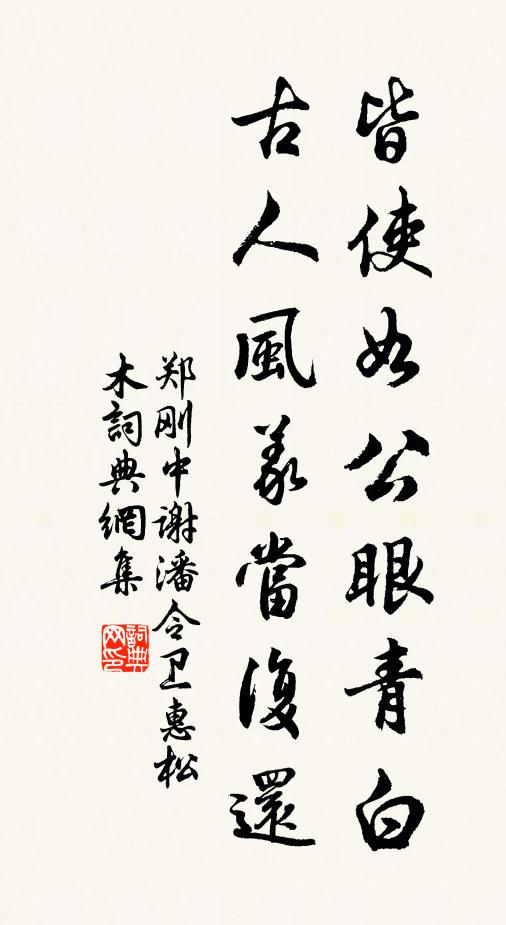 皆使如公眼青白
古人風義當復還
郑刚中谢潘令卫惠松
木詞典網集
詞典网印